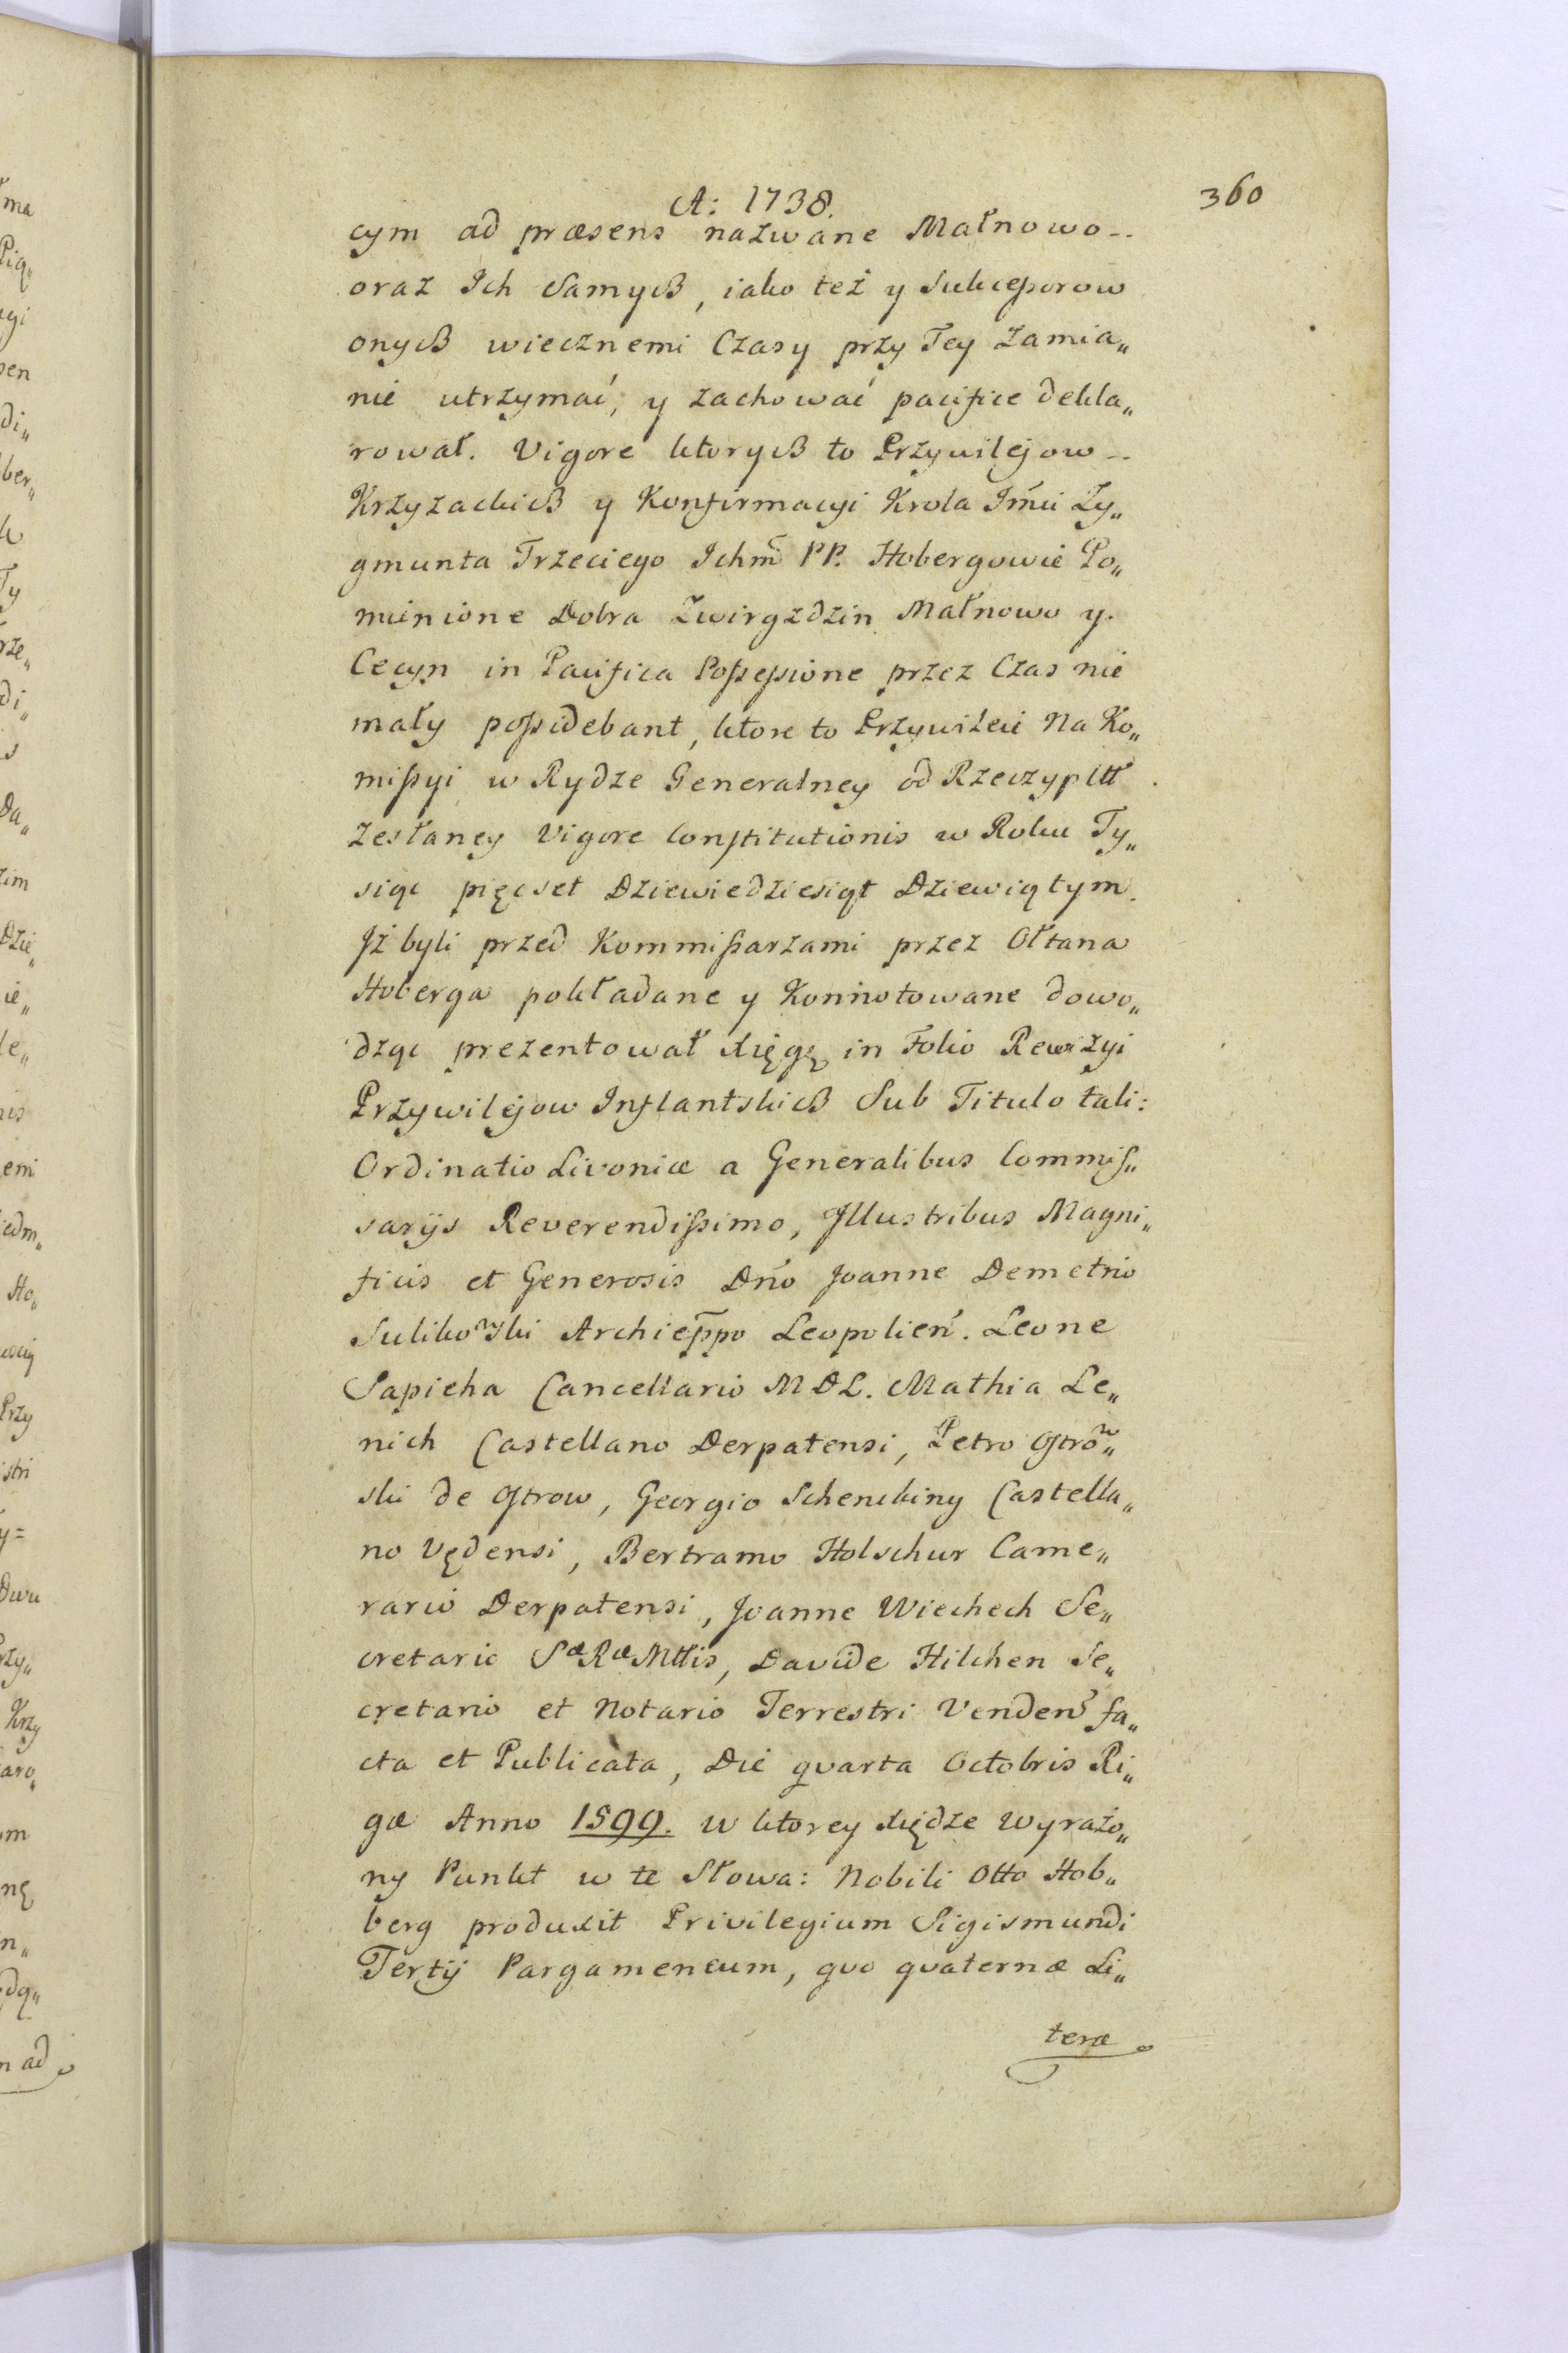 A: 1738.
360
cym ad præsens nazwane Małnowo --
oraz Ich Samych, iako też y Sukcessorow
onych wiecznemi Czasy przy Tey zamia„
nie utrzymać, y zachować pacifice dekla„
rował. Vigore ktorych to Przywilejow --
Krzyzackich y Konfirmacyi Krola Jmći Zy„
gmunta Trzeciego Ichmć PP. Hobergowie Po„
mienione Dobra Zwirgzdzin Małnowo y
Cecyn in Pacifica Possessione przez Czas nie
mały possidebant, ktore to Przywileie Na Ko„
missyi w Rydze Generalney od Rzeczyplttt
Zesłaney Vigore Constitutionis w Roku Ty„
siąc pięcset Dziewiedziesiąt Dziewiątym.
Jż byli przed Kommissarzami przez Ottana
Hoberga pokładane y Konnotowane dowo„
dząc prezentował xięgę in Folio Rewizyi
Przywilejow Inflantskich Sub Titulo tali:
Ordinatio Livoniæ a Generalibus Commis„
sarijs Reverendissimo, Jllustribus Magni„
ficis et Generosis Dńo Joanne Demetrio
Sulikowski Archieppo Leopolień. Leone
Sapieha Cancellario MDL. Mathia Le„
nich Castellano Derpatensi, Petro Ostrow„
ski de Ostrow, Georgio Schenckiny Castella„
no Vędensi, Bertramo Holschur Came„
rario Derpatensi, Joanne Wiechech Se„
cretario Sæ Ræ Mttis, Davide Hilchen Se„
cretario et Notario Terrestri Venden͂ fa„
cta et Publicata, Die quarta Octobris Ri„
gæ Anno 1599. w ktorey xiędze wyrażo„
ny Punkt w te Słowa: Nobili Otto Hob„
berg produxit Privilegium Sigismundi
Tertij Pargameneum, quo quaternæ Li„
teræ